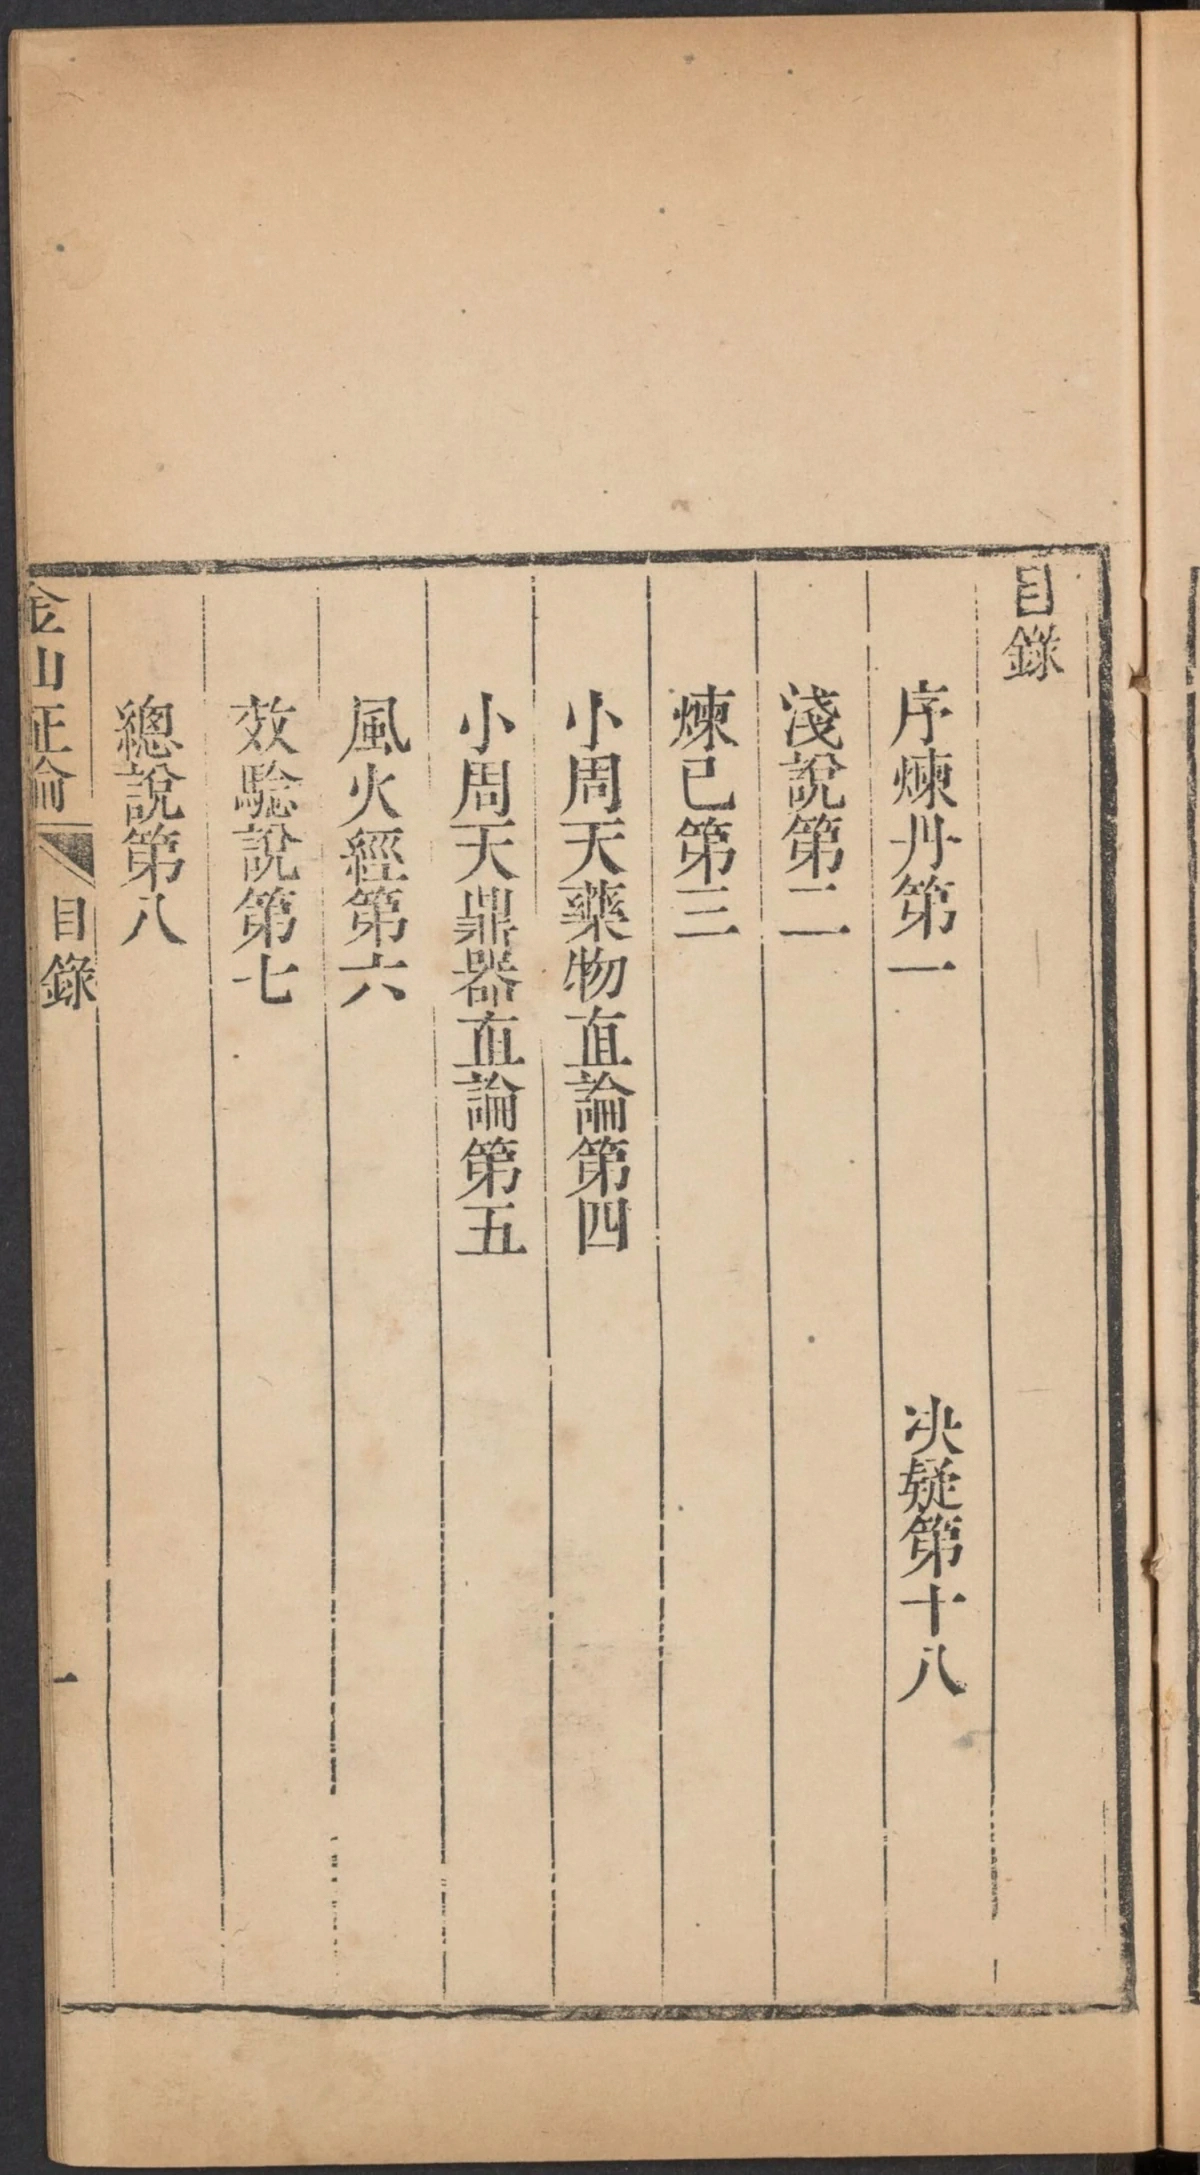 目錄
序煉丹第一
决疑第十八
淺說第二
煉己第三
小周天藥物直論第四
小周天鼎器直論第五
風火經第六
效驗說第七
總說第八
金山正論
目錄
一